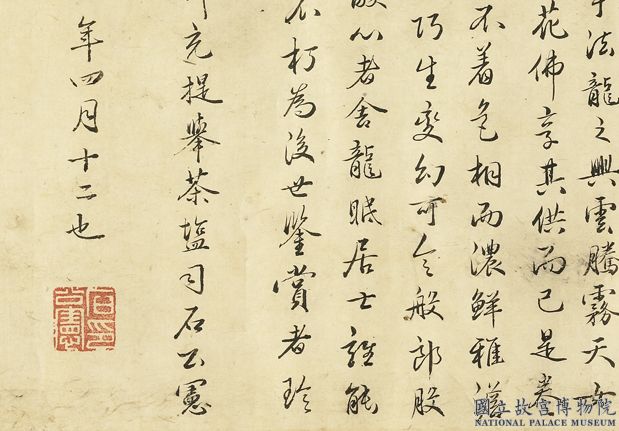 法龍之興雲騰霧天女
花佛享其供而已是卷
不着色相而濃鮮雅澹
巧生變幻可令般郎股
心者舍龍眠居士誰能
不朽為後世鑒賞者珍
充提舉茶鹽司石公憲
年四月十二也
國立故宮博物院
NATIONAL PALACE MUSEUM